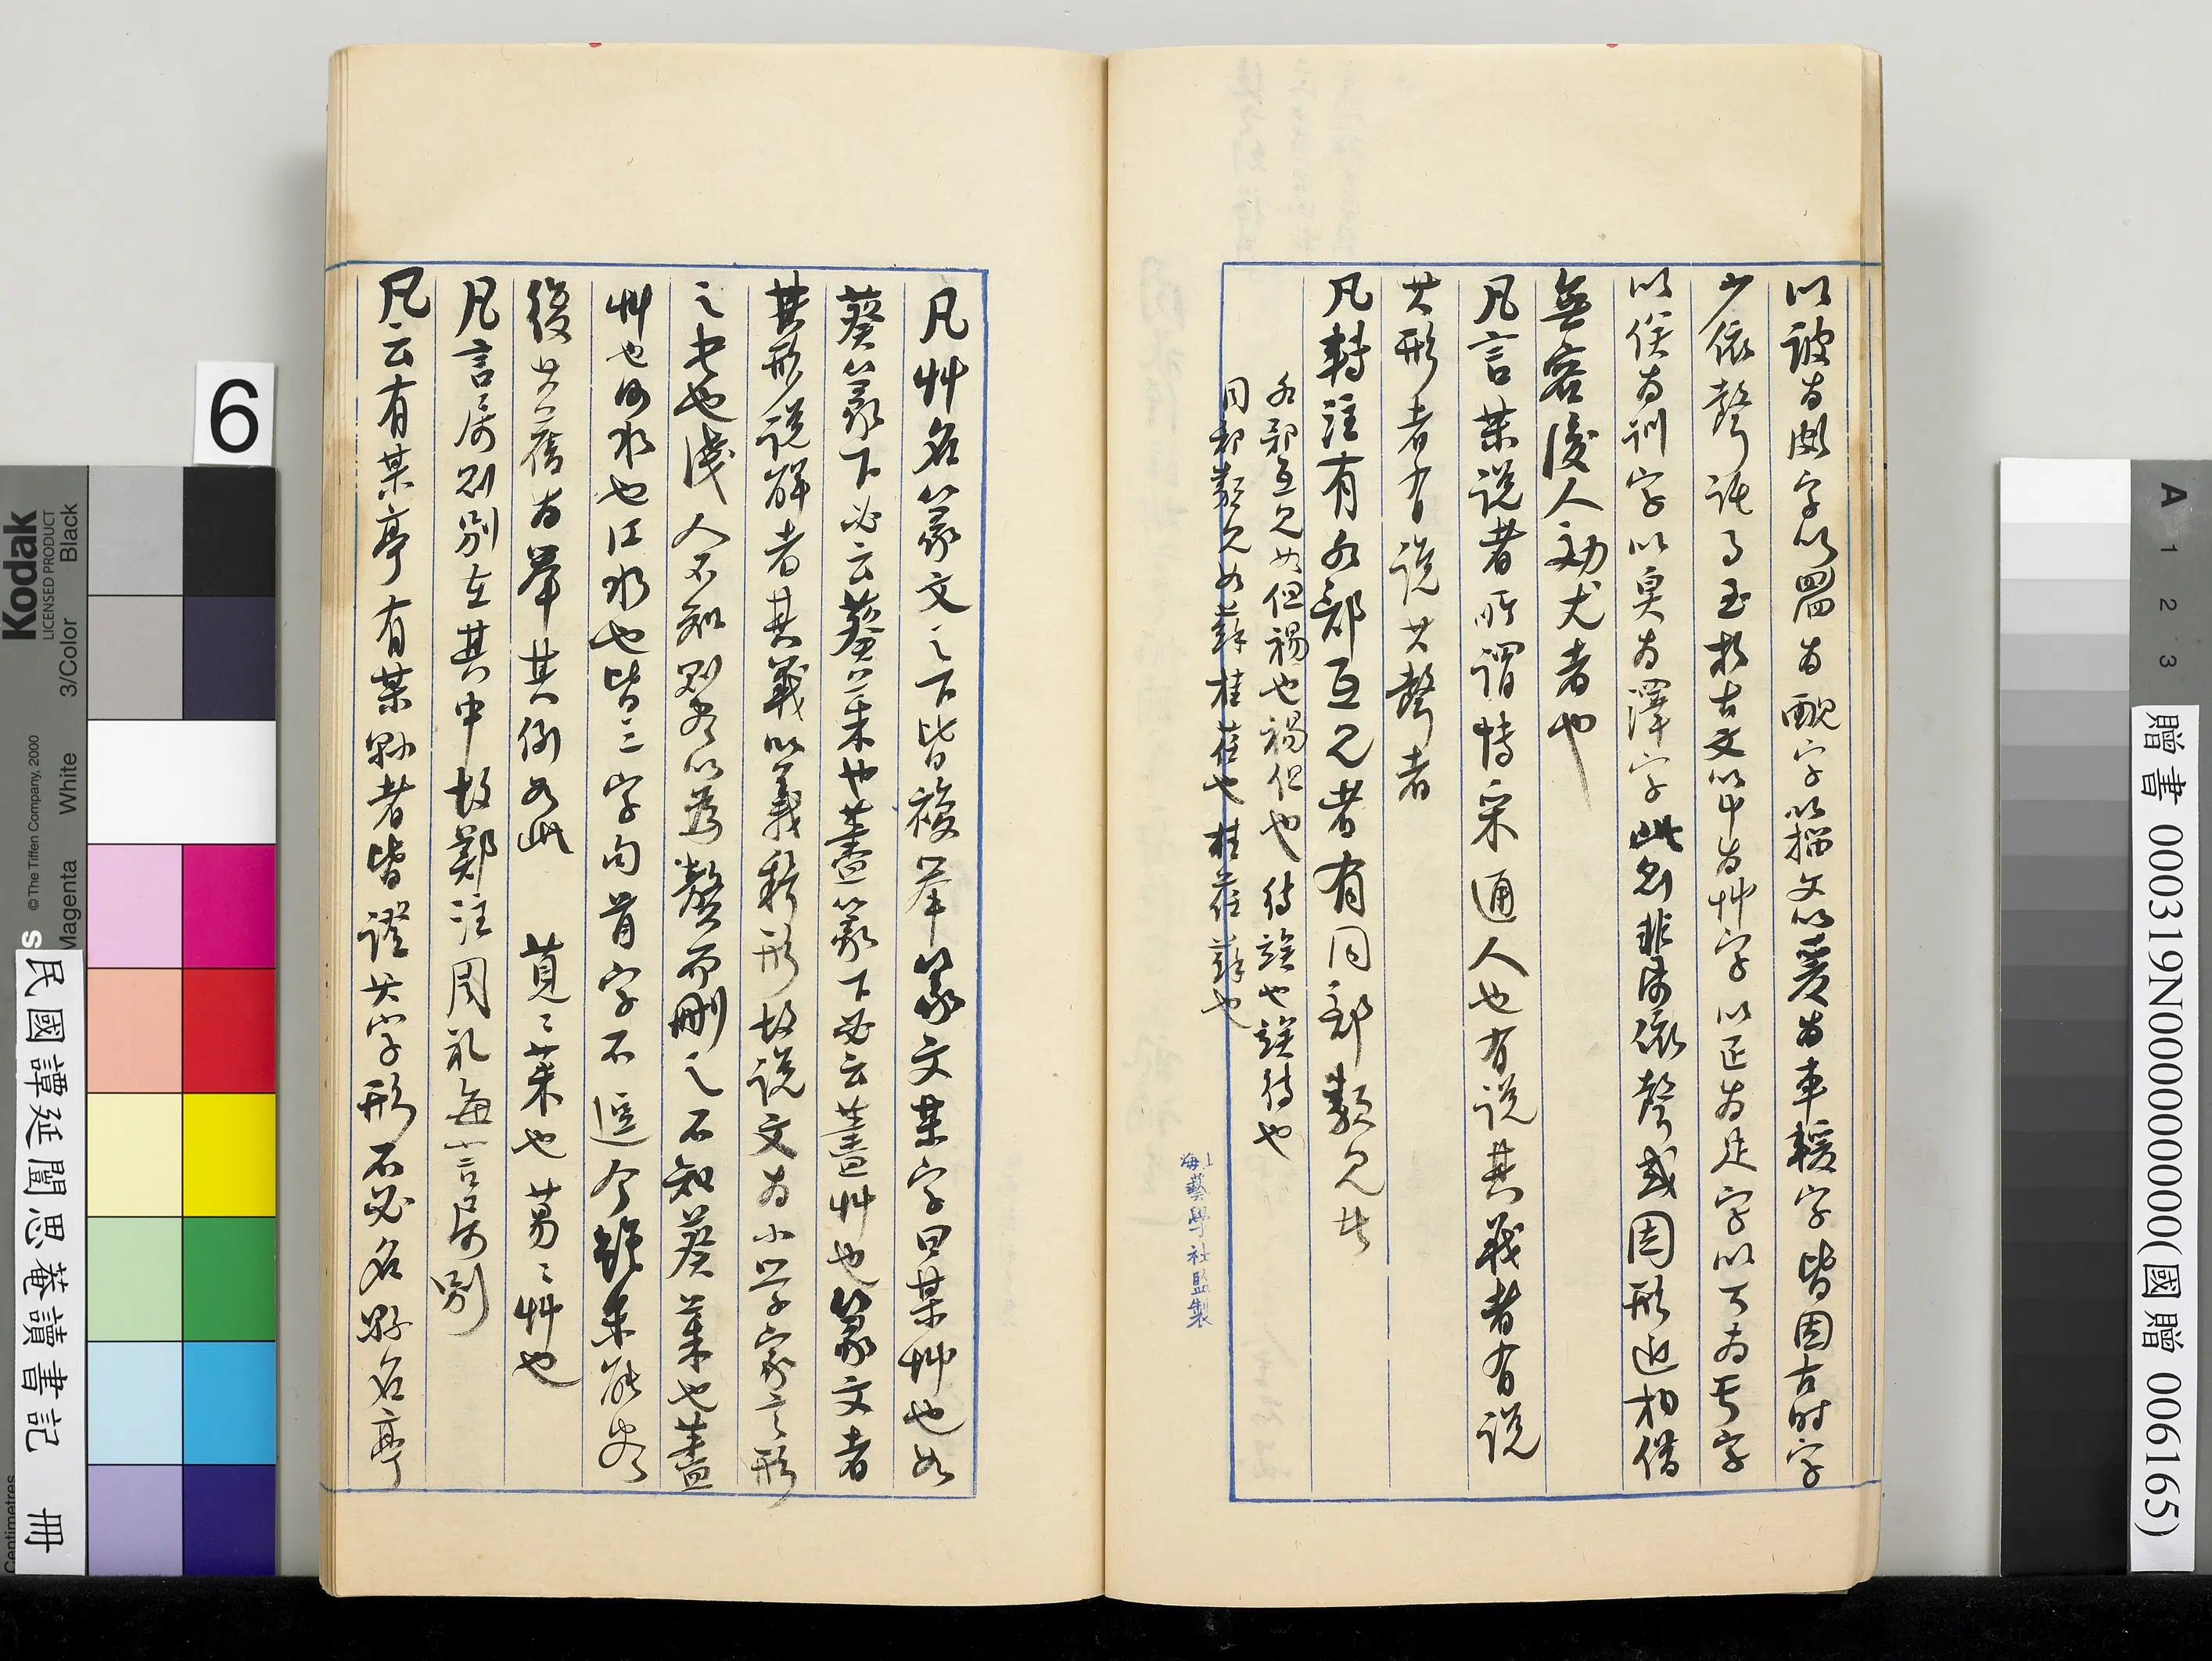 以詖為頗字以為字以籀文以爰為車轅字皆因古時字
少依聲託事至於古文以屮為艸字以疋為足字以丂為亏字
以俟為訓字以臭為澤字此則非屬依聲或因形近相借
無容後人効尤者也
凡言某說者所謂博采通人也有說其義者有說
其形者有說其聲者
凡轉注有各部互見者有同部類見者
各部互見如但裼也裼但也 待竢也竢待也
同部類見如
上海藝學社監製
凡艸名篆文之下皆複舉篆文某字曰某艸也如
葵篆下必云葵菜也藎篆下必云藎艸也篆文者
其形說解者其義以義釋形故說文為小學家言形
之書也淺人不知則盡以為贅而刪之不知葵菜也藎
艸也河水也江水也皆三字句首字不逗今雖未能盡
復其舊為舉其例如此 莧〻菜也 葛〻艸也
凡言屬則別在其中故鄭注周礼每言屬別
凡云有某亭有某縣者皆證其字形不必名縣名亭
6
Kodak
LICENSED PRODUCT
© The Tiffen Company, 2000
3/Color Black
Magenta White
Centimetres
民國譚延闓思菴讀書記 冊
A 1 2 3
贈書 000319N000000000000(國贈 006165)